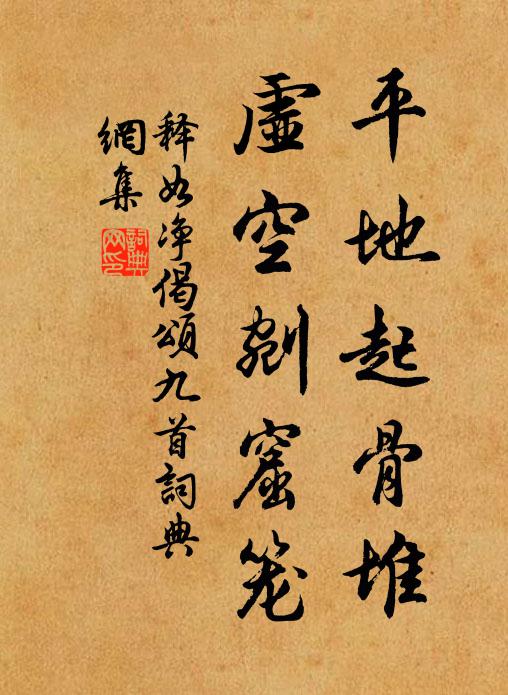 平地起骨堆
虚空剜窟笼
释如净偈颂九首詞典
網集
詞典网印